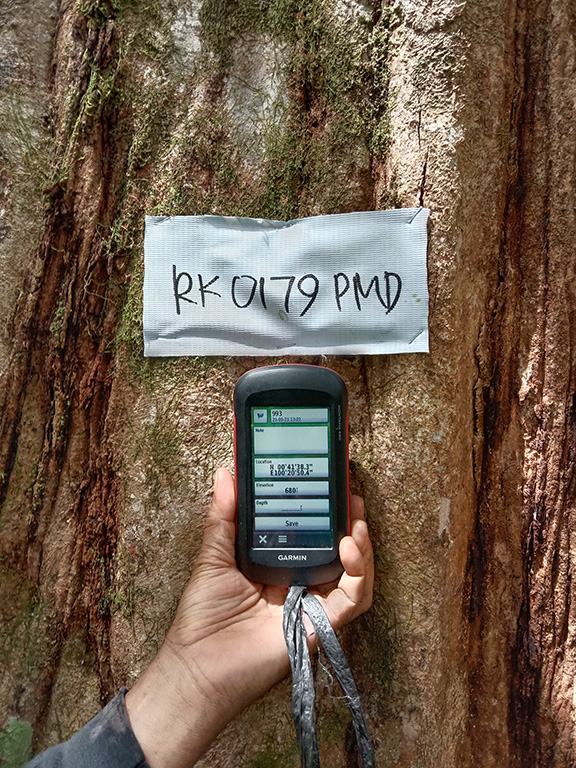 RK 0179 PMD
993
Note
Location
N 00°41'38.3"
E100°20'50.4"
Elevation
680
Depth
Save
GARMIN